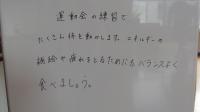 運動会の練習で
たくさん体を動かします。エネルギーの
補給や疲れをとるためにも、バランスよく
食べましょう。